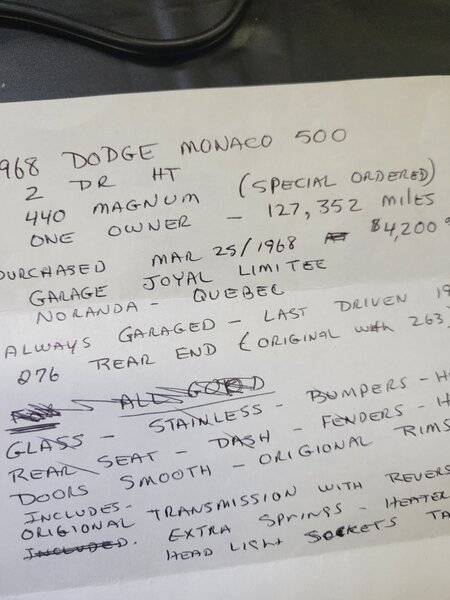 968 DODGE MONACO 500
2 DR HT
440 MAGNUM (SPECIAL ORDERED)
ONE OWNER - 127,352 MILES
PURCHASED MAR 25/1968 $4,200
GARAGE JOYAL LIMITEE
NORANDA - QUEBEC
ALWAYS GARAGED - LAST DRIVEN 19
276 REAR END (ORIGINAL WITH 263)
ALL GOOD
GLASS - STAINLESS - BUMPERS - H
REAR SEAT - DASH - FENDERS - H
DOORS SMOOTH - ORIGIONAL RIMS
INCLUDES-
ORIGIONAL TRANSMISSION WITH REVERS
INCLUDED. EXTRA SPRINGS - HEATER
HEAD LIGHT SOCKETS TA